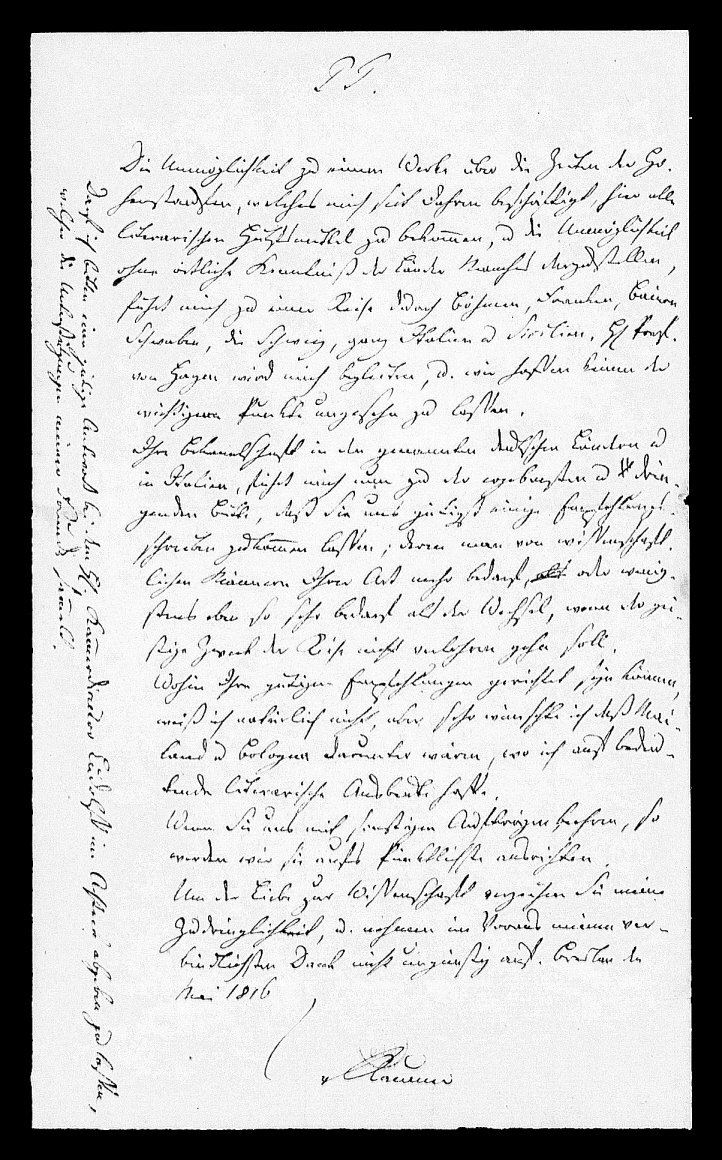 P P.
Die Unmöglichkeit zu einem Werke über die Zeiten der Ho-
henstaufen, welches mich seit Jahren beschäftigt, hier alle
literarischen Hülfsmittel zu bekommen, u die Unmöglichkeit
ohne örtliche Kenntniß der Länder Manches darzustellen,
führt mich zu einer Reise durch Böhmen, Franken, Baiern
Schwaben, die Schweiz, ganz Italien u Sicilien. H Prof.
von Hagen wird mich begleiten, u. wir hoffen keinen der
wichtigern Punkte ungesehn zu lassen.
Ihre Bekanntschaft in den genannten deutschen Ländern u
in Italien, führt mich nun zu der ergebensten u drin-
genden Bitte, daß Sie uns gütigst einige Empfehlungs-
schreiben zukommen lassen; deren man von wissenschaft-
lichen Männern Ihrer Art mehr bedarf, oder wenig-
stens eben so sehr bedarf als der Wechsel, wenn der gei-
stige Zweck der Reise nicht verloren gehn soll.
Wohin Ihre gütigen Empfehlungen gerichtet seyn können,
weiß ich natürlich nicht, aber sehr wünschte ich daß Mai-
land u Bologna darunter wären, wo ich auf bedeu-
tende literarische Ausbeute hoffe.
Wenn Sie uns mit sonstigen Aufträgen beehren, so
werden wir sie aufs Pünktlichste ausrichten.
Um der Liebe zur Wissenschaft verzeihen Sie meine
Zudringlichkeit, u. nehmen im Voraus meinen ver-
bindlichsten Dank nicht ungünstig auf. Breslau den
Mai 1816
v Raumer
Darf ich bitten eine gütige Antwort bei dem H. Kammerdirector abgeben zu lassen,
welcher die